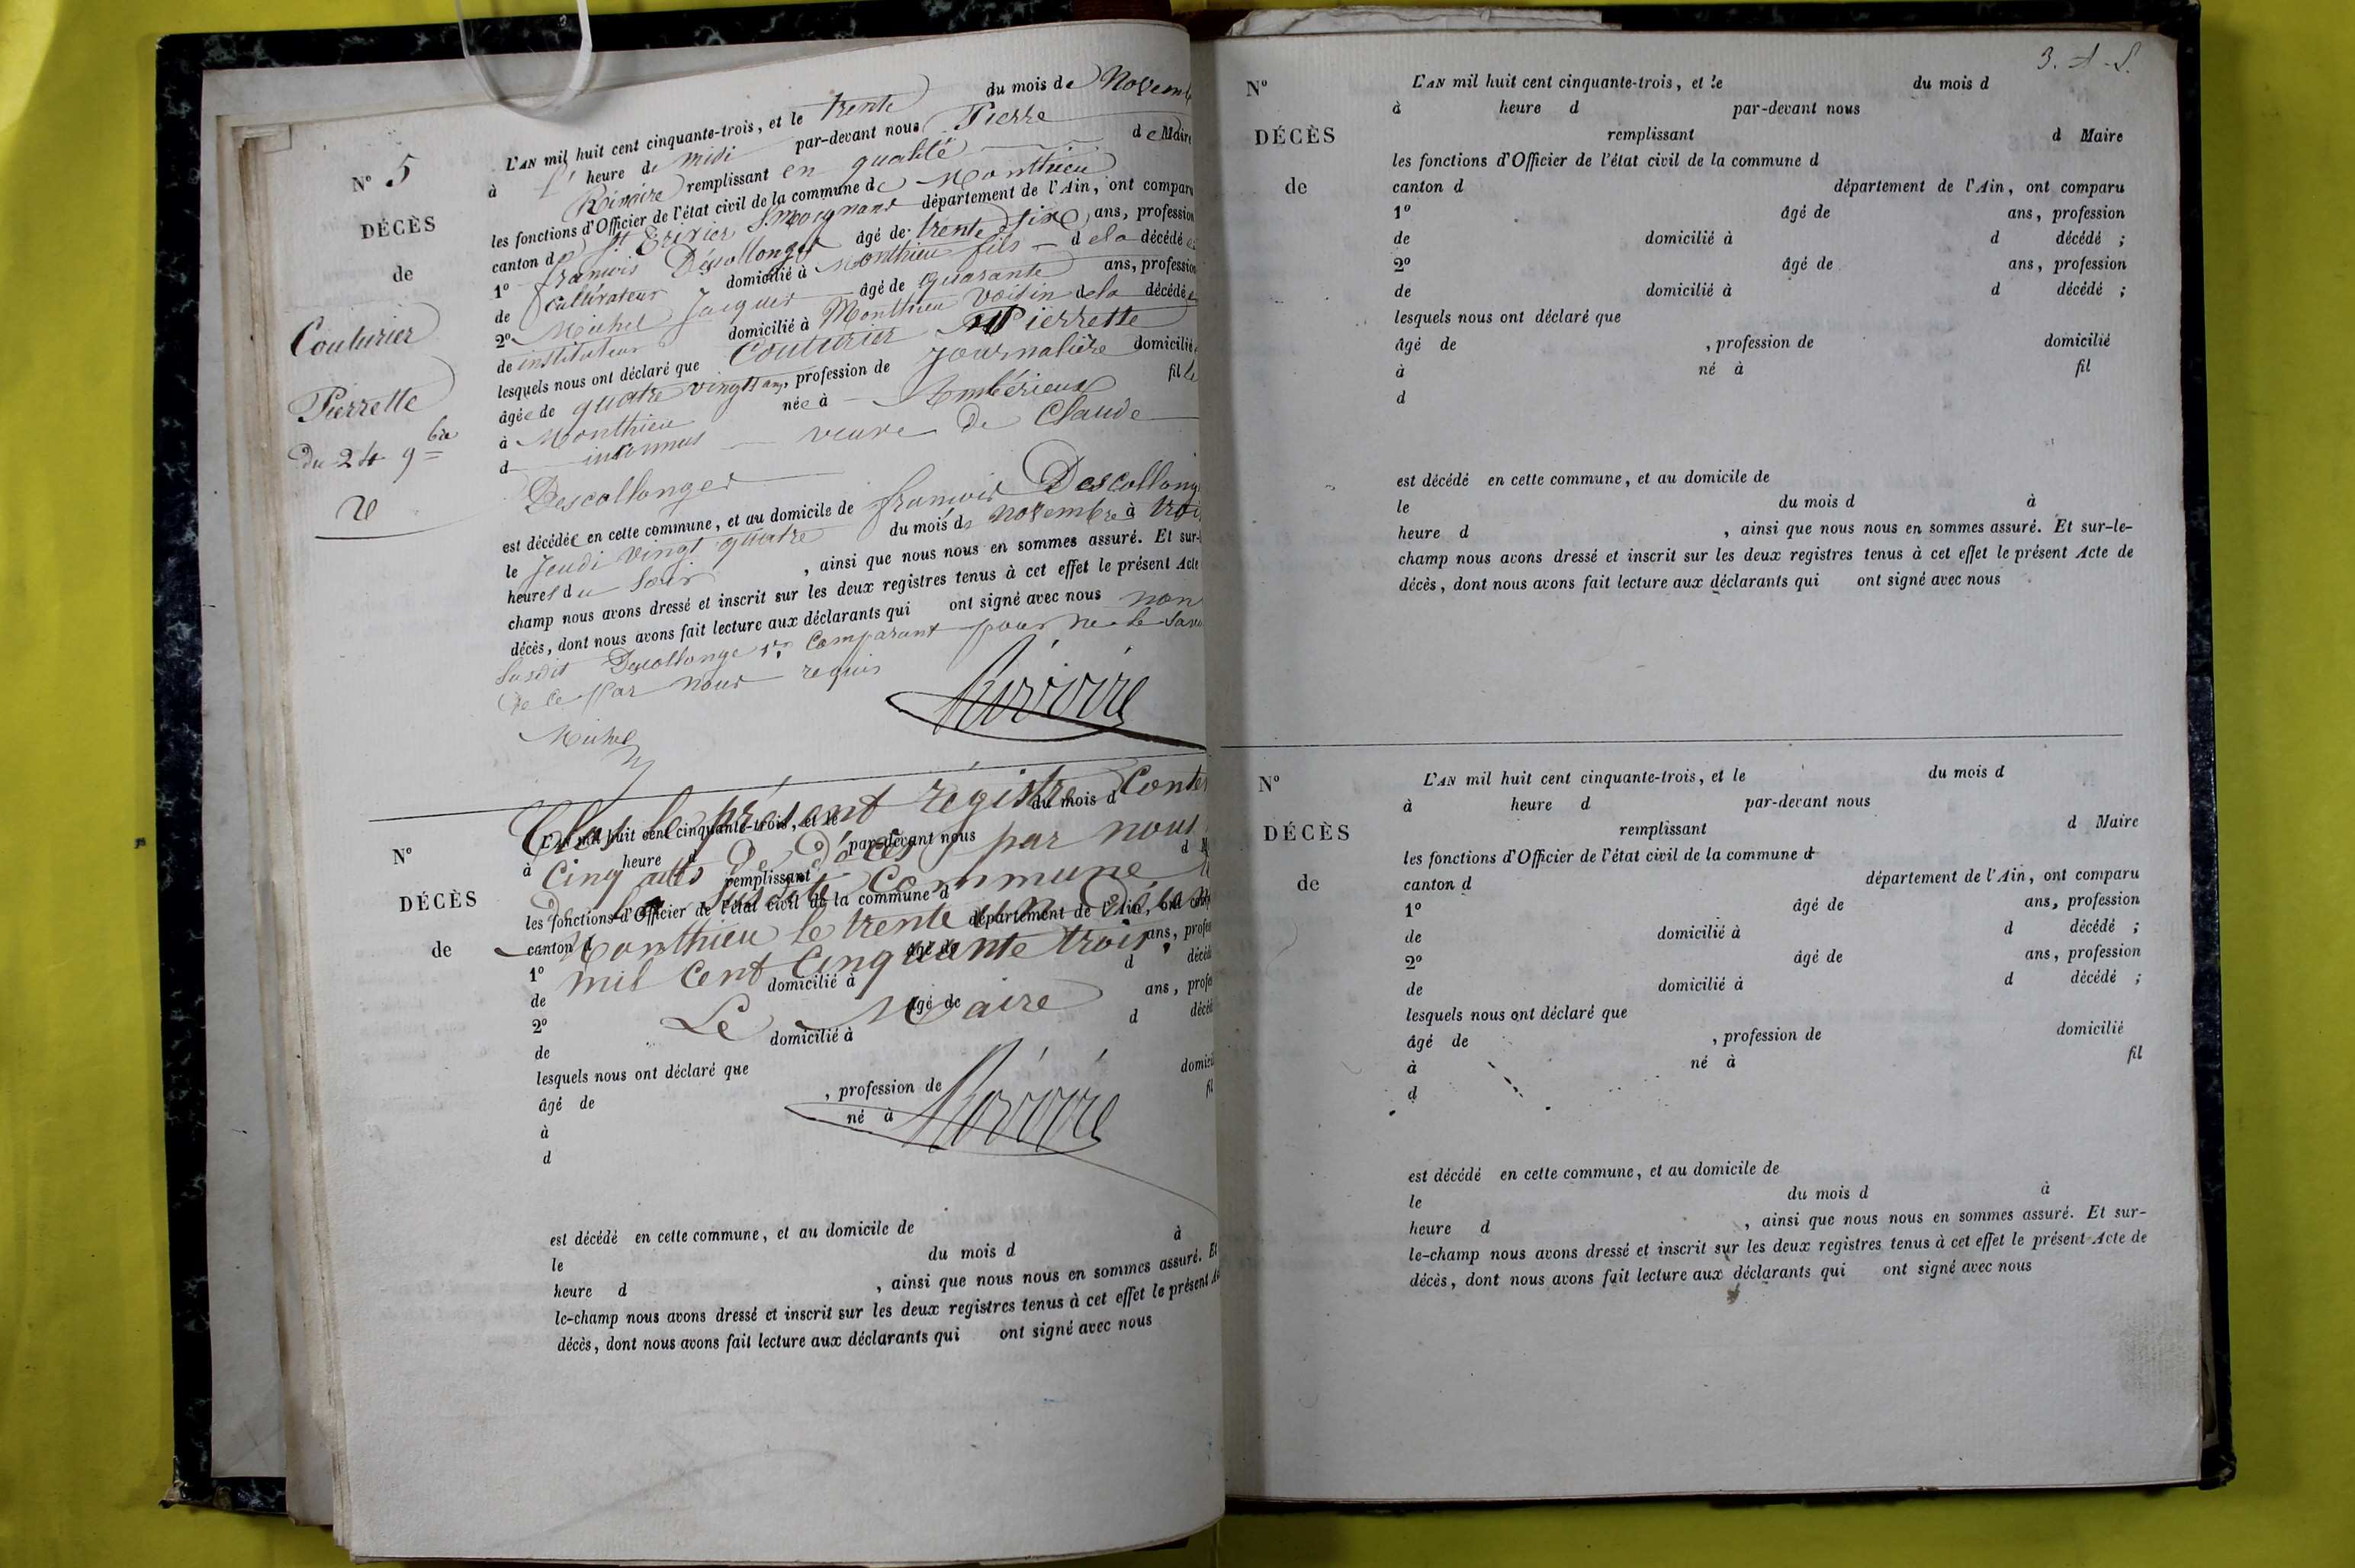 N° 5
DÉCÈS
de
Couturier
Pierrette
Du 24 9bre
L'AN mil huit cent cinquante-trois, et le trente du mois de Novemb
à heure de midi par-devant nous Pierre
Rivoire remplissant en qualité de Maire
les fonctions d'Officier de l'état civil de la commune de Monthieu
canton de St Trivier s. Moignans département de l'Ain, ont comparu
1° françois Descollonges âgé de trente six ans, profession
de cultivateur domicilié à Monthieu fils de la décédée
2° Michel Jacques âgé de quarante ans, profession
de instituteur domicilié à Monthieu voisin de la décédée
lesquels nous ont déclaré que Couturier Pierrette
âgée de quatre vingts ans, profession de Journalière domiciliée
à Monthieu née à Ambérieux fille
d inconnus veuve de Claude
Descollonges
est décédée en cette commune, et au domicile de françois Descollong
le Jeudi vingt quatre du mois de novembre à troi
heures du Soir, ainsi que nous nous en sommes assuré. Et sur-l
champ nous avons dressé et inscrit sur les deux registres tenus à cet effet le présent Acte
décès, dont nous avons fait lecture aux déclarants qui ont signé avec nous non
Susdit Descollonge 1er Comparant pour ne le Savoi
de ce par nous requis
Rivoire
Michel
N°
DÉCÈS
de
Clos le présent régistre Conte
Cinq actes de Décès par nous
De la susdite Commune
Monthieu le trente un
mil cent cinquante trois.
Le Maire
Rivoire
L'AN mil huit cent cinquante-trois, et le du mois d
à heure d par-devant nous
remplissant d M
les fonctions d'Officier de l'état civil de la commune d
canton d département de l'Ain, ont comp
1° âgé de ans, profes
de domicilié à d décéd
2° âgé de ans, profe
de domicilié à d décéd
lesquels nous ont déclaré que
âgé de , profession de domici
à né à fil
d
est décédé en cette commune, et au domicile de
le du mois d à
heure d , ainsi que nous nous en sommes assuré. Et
le-champ nous avons dressé et inscrit sur les deux registres tenus à cet effet le présent A
décès, dont nous avons fait lecture aux déclarants qui ont signé avec nous
N°
DÉCÈS
de
L'AN mil huit cent cinquante-trois, et le du mois d
à heure d par-devant nous
remplissant d Maire
les fonctions d'Officier de l'état civil de la commune d
canton d département de l'Ain, ont comparu
1° âgé de ans, profession
de domicilié à d décédé ;
2° âgé de ans, profession
de domicilié à d décédé ;
lesquels nous ont déclaré que
âgé de , profession de domicilié
à né à fil
d
est décédé en cette commune, et au domicile de
le du mois d à
heure d , ainsi que nous nous en sommes assuré. Et sur-le-
champ nous avons dressé et inscrit sur les deux registres tenus à cet effet le présent Acte de
décès, dont nous avons fait lecture aux déclarants qui ont signé avec nous
N°
DÉCÈS
de
L'AN mil huit cent cinquante-trois, et le du mois d
à heure d par-devant nous
remplissant d Maire
les fonctions d'Officier de l'état civil de la commune d
canton d département de l'Ain, ont comparu
1° âgé de ans, profession
de domicilié à d décédé ;
2° âgé de ans, profession
de domicilié à d décédé ;
lesquels nous ont déclaré que
âgé de , profession de domicilié
à né à fil
d
est décédé en cette commune, et au domicile de
le du mois d à
heure d , ainsi que nous nous en sommes assuré. Et sur-
le-champ nous avons dressé et inscrit sur les deux registres tenus à cet effet le présent Acte de
décès, dont nous avons fait lecture aux déclarants qui ont signé avec nous